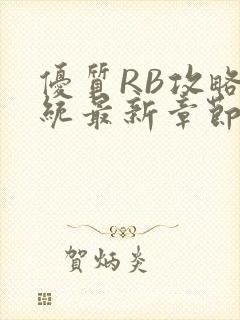 優質RB攻略
統最新章節
賀炳炎